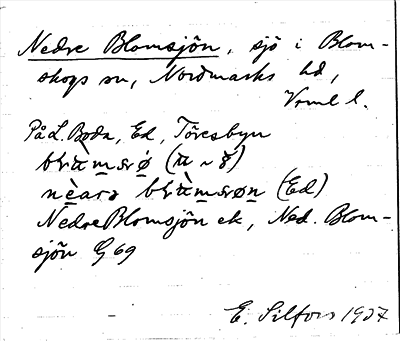 Nedre Blomsjön, sjö i Blom-
skogs sn, Nordmarks hd,
Vrml l.
På L. Boda, Ed, Töresbyn
(u ~ ४)
(Ed)
Nedre Blomsjön ek, Ned. Blom-
sjön G 69
E. Silfors 1937